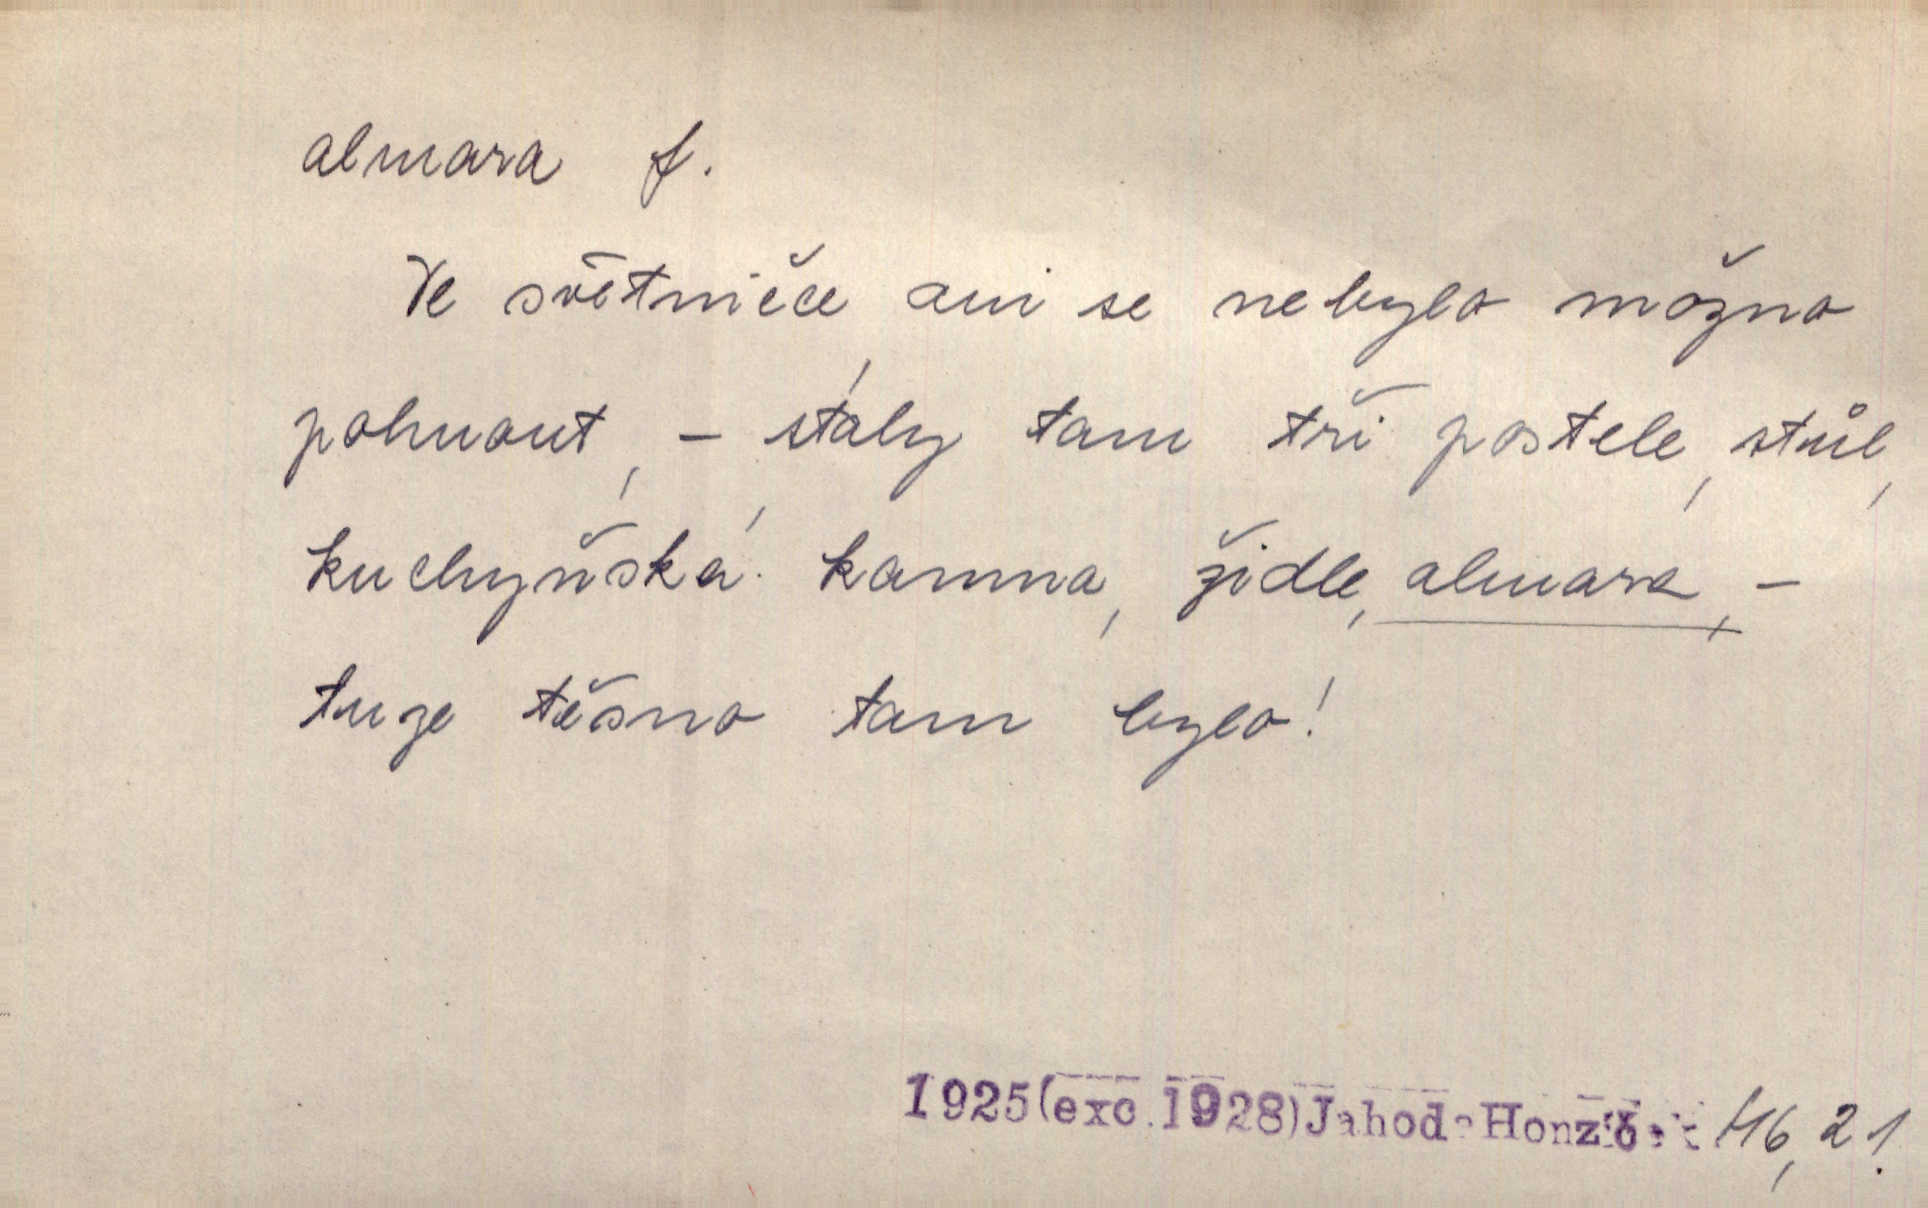 almara f.
Ve světničce ani se nebylo možno
pohnout, – stály tam tři postele, stůl,
kuchyňská kamna, židle, almara, –
tuze těsno tam bylo!
1925(exc.1928)Jahoda Honzíček 46,21.